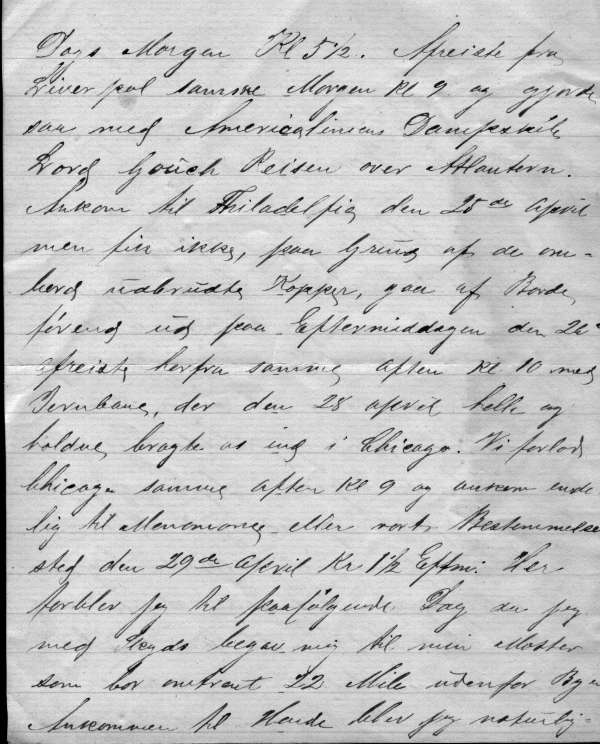 Dags Morgen Kl 5½. Afreiste fra
Liverpool samme Morgen Kl 9 og gjorde
saa med Americaliniens Dampskib
Lord Gouch Reisen over Atlantern.
Ankom til Philadelfia den 25de April
men fik ikke, paa Grund af de om-
bord udbrudte Kopper, gaa af Borde
førend ud paa Eftermiddagen den 26
afreiste herfra samme aften kl 10 med
Jernbane, der den 28 april helle og
holdne bragte os ind i Chicago. Vi forlod
Chicago samme aften Kl 9 og ankom ende
lig til Menomonee eller vort Bestemmelse
sted den 29de April Kl 1½ Eftm. Her
forblev jeg til paafølgende Dag da jeg
med Skyds begav mig til min Moster
som bor omtrent 22 Mile udenfor Byen
Ankommen til Hende blev jeg naturlig-